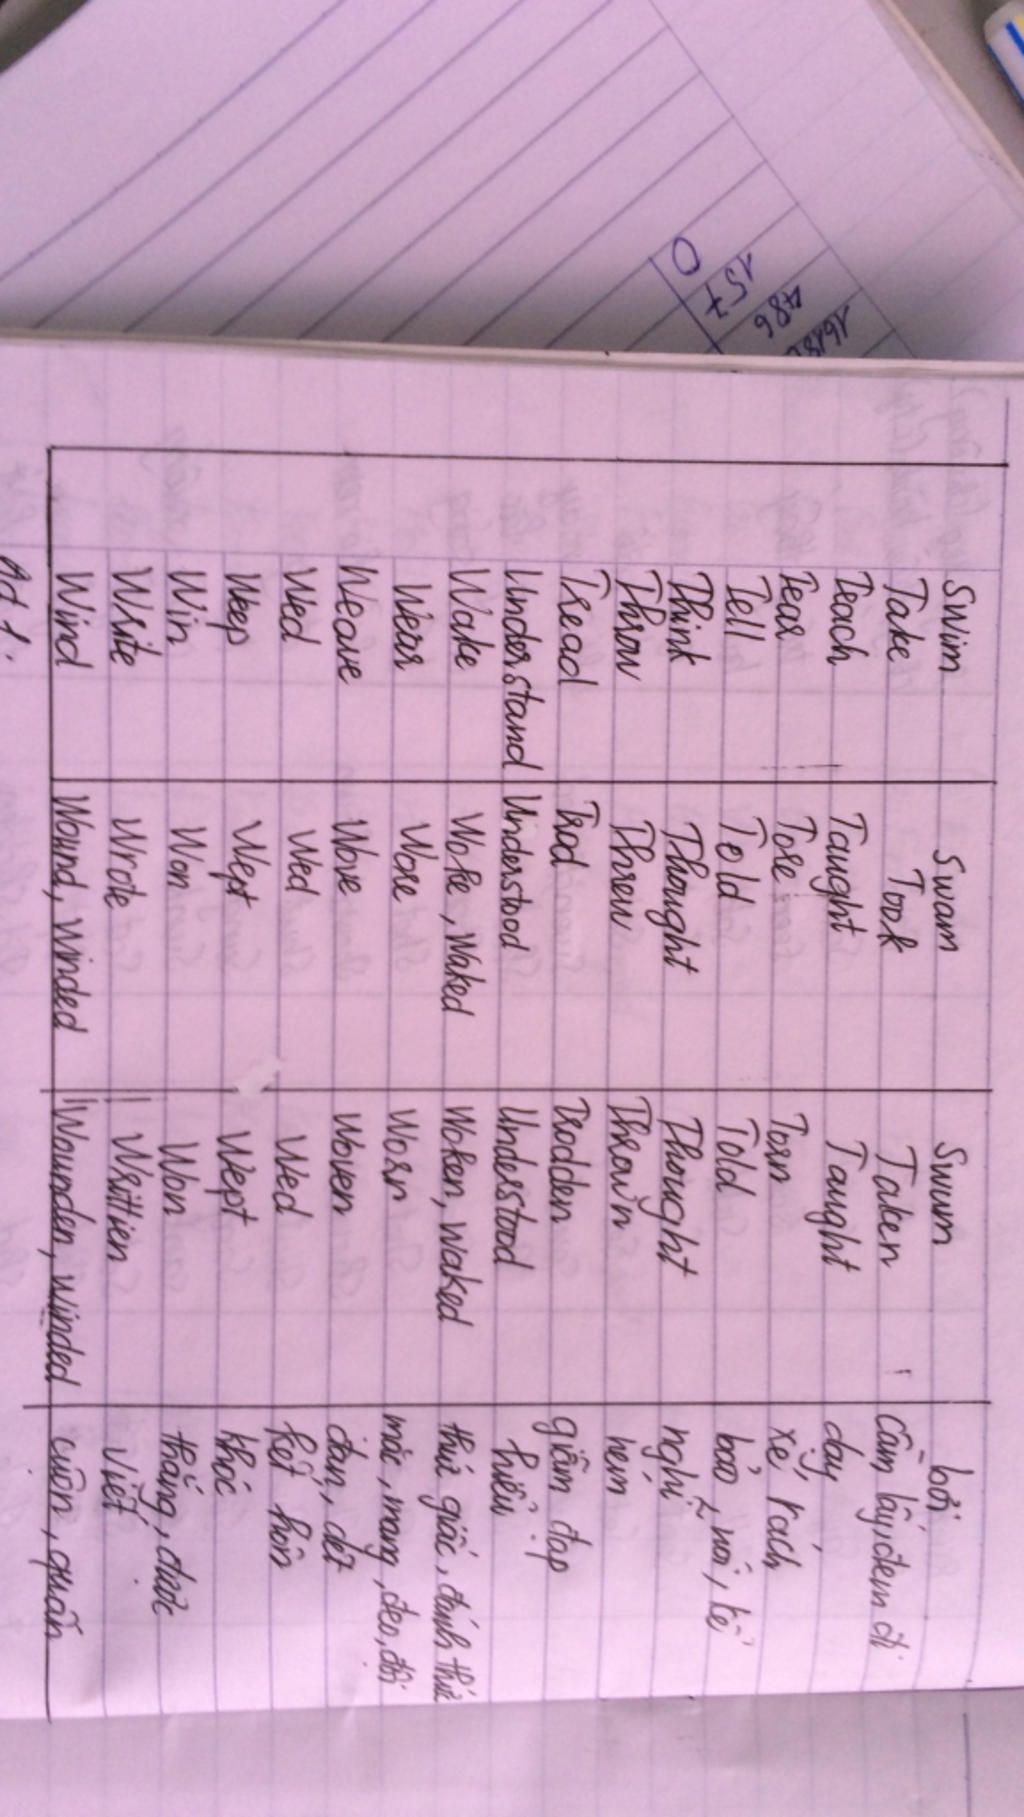 0
157
486
Swim Swam Swum bơi
Take Took Taken cầm lấy, đem đi
Teach Taught Taught dạy
Tear Tore Torn xé, rách
Tell Told Told bảo, nói, kể
Think Thought Thought nghĩ
Throw Threw Thrown ném
Tread Trod Trodden giẫm đạp
Understand Understood Understood hiểu
Wake Woke, Waked Woken, Waked thức giấc, đánh thức
Wear Wore Worn mặc, mang, đeo, đội
Weave Wove Woven đan, dệt
Wed Wed Wed kết hôn
Weep Wept Wept khóc
Win Won Won thắng, được
Write Wrote Writtien viết
Wind Wound, Winded Wounden, Winded cuộn, quấn